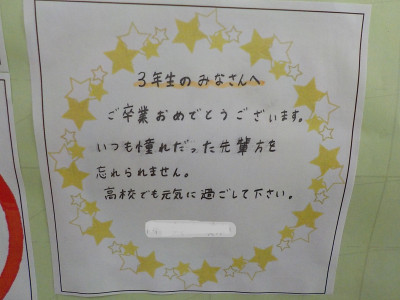 3年生のみなさんへ
ご卒業おめでとうございます。
いつも憧れだった先輩方を
忘れられません。
高校でも元気に過ごして下さい。